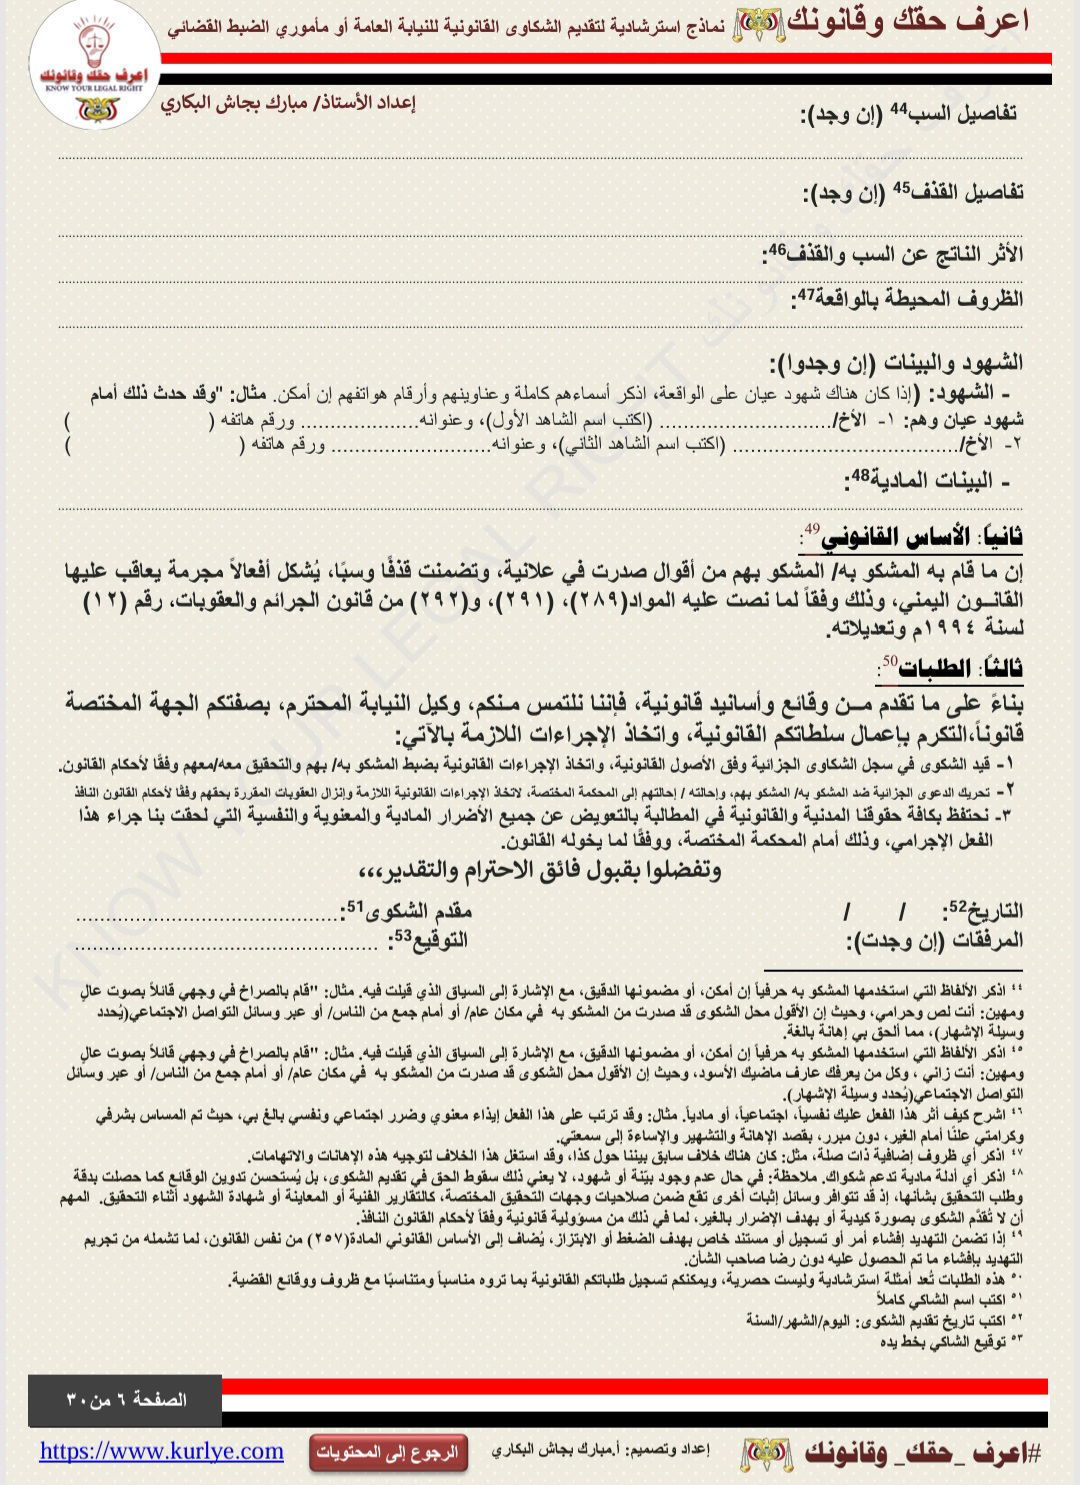 اعرف حقك وقانونك
نماذج استرشادية لتقديم الشكاوى القانونية للنيابة العامة أو مأموري الضبط القضائي
اعرف حقك وقانونك
KNOW YOUR LEGAL RIGHT
إعداد الأستاذ/ مبارك بجاش البكاري
تفاصيل السب44 (إن وجد):
تفاصيل القذف45 (إن وجد):
الأثر الناتج عن السب والقذف46:
الظروف المحيطة بالواقعة47:
الشهود والبينات (إن وجدوا):
- الشهود: (إذا كان هناك شهود عيان على الواقعة، اذكر أسماءهم كاملة وعناوينهم وأرقام هواتفهم إن أمكن. مثال: "وقد حدث ذلك أمام
شهود عيان وهم: ١- الأخ/............................. (اكتب اسم الشاهد الأول)، وعنوانه.................... ورقم هاتفه ( )
٢- الأخ/...................................... (اكتب اسم الشاهد الثاني)، وعنوانه........................... ورقم هاتفه ( )
- البينات المادية48:
ثانياً: الأساس القانوني49:
إن ما قام به المشكو به/ المشكو بهم من أقوال صدرت في علانية، وتضمنت قذفًا وسبًا، يُشكل أفعالاً مجرمة يعاقب عليها
القانــون اليمني، وذلك وفقاً لما نصت عليه المواد(٢٨٩)، (٢٩١)، و(٢٩٢) من قانون الجرائم والعقوبات، رقم (١٢)
لسنة ١٩٩٤م وتعديلاته.
ثالثاً: الطلبات50:
بناءً على ما تقدم مــن وقائع وأسانيد قانونية، فإننا نلتمس مـنكم، وكيل النيابة المحترم، بصفتكم الجهة المختصة
قانوناً،التكرم بإعمال سلطاتكم القانونية، واتخاذ الإجراءات اللازمة بالآتي:
١- قيد الشكوى في سجل الشكاوى الجزائية وفق الأصول القانونية، واتخاذ الإجراءات القانونية بضبط المشكو به/ بهم والتحقيق معه/معهم وفقًا لأحكام القانون.
٢- تحريك الدعوى الجزائية ضد المشكو به/ المشكو بهم، وإحالته / إحالتهم إلى المحكمة المختصة، لاتخاذ الإجراءات القانونية اللازمة وإنزال العقوبات المقررة بحقهم وفقًا لأحكام القانون النافذ
٣- نحتفظ بكافة حقوقنا المدنية والقانونية في المطالبة بالتعويض عن جميع الأضرار المادية والمعنوية والنفسية التي لحقت بنا جراء هذا
الفعل الإجرامي، وذلك أمام المحكمة المختصة، ووفقًا لما يخوله القانون.
وتفضلوا بقبول فائق الاحترام والتقدير،،،
التاريخ52: / / مقدم الشكوى51:....................................
المرفقات (إن وجدت): التوقيع53: .........................................
٤٤ اذكر الألفاظ التي استخدمها المشكو به حرفياً إن أمكن، أو مضمونها الدقيق، مع الإشارة إلى السياق الذي قيلت فيه. مثال: "قام بالصراخ في وجهي قائلاً بصوت عالٍ
ومهين: أنت لص وحرامي، وحيث إن الأقول محل الشكوى قد صدرت من المشكو به في مكان عام/ أو أمام جمع من الناس/ أو عبر وسائل التواصل الاجتماعي(يُحدد
وسيلة الإشهار)، مما ألحق بي إهانة بالغة.
٤٥ اذكر الألفاظ التي استخدمها المشكو به حرفياً إن أمكن، أو مضمونها الدقيق، مع الإشارة إلى السياق الذي قيلت فيه. مثال: "قام بالصراخ في وجهي قائلاً بصوت عالٍ
ومهين: أنت زاني ، وكل من يعرفك عارف ماضيك الأسود، وحيث إن الأقول محل الشكوى قد صدرت من المشكو به في مكان عام/ أو أمام جمع من الناس/ أو عبر وسائل
التواصل الاجتماعي(يُحدد وسيلة الإشهار).
٤٦ اشرح كيف أثر هذا الفعل عليك نفسياً، اجتماعياً، أو مادياً. مثال: وقد ترتب على هذا الفعل إيذاء معنوي وضرر اجتماعي ونفسي بالغ بي، حيث تم المساس بشرفي
وكرامتي علنًا أمام الغير، دون مبرر، بقصد الإهانة والتشهير والإساءة إلى سمعتي.
٤٧ اذكر أي ظروف إضافية ذات صلة، مثل: كان هناك خلاف سابق بيننا حول كذا، وقد استغل هذا الخلاف لتوجيه هذه الإهانات والاتهامات.
٤٨ اذكر أي أدلة مادية تدعم شكواك. ملاحظة: في حال عدم وجود بيّنة أو شهود، لا يعني ذلك سقوط الحق في تقديم الشكوى، بل يُستحسن تدوين الوقائع كما حصلت بدقة
وطلب التحقيق بشأنها، إذ قد تتوافر وسائل إثبات أخرى تقع ضمن صلاحيات وجهات التحقيق المختصة، كالتقارير الفنية أو المعاينة أو شهادة الشهود أثناء التحقيق. المهم
أن لا تُقدَّم الشكوى بصورة كيدية أو بهدف الإضرار بالغير، لما في ذلك من مسؤولية قانونية وفقاً لأحكام القانون النافذ.
٤٩ إذا تضمن التهديد إفشاء أمر أو تسجيل أو مستند خاص بهدف الضغط أو الابتزاز، يُضاف إلى الأساس القانوني المادة(٢٥٧) من نفس القانون، لما تشمله من تجريم
التهديد بإفشاء ما تم الحصول عليه دون رضا صاحب الشأن.
٥٠ هذه الطلبات تُعد أمثلة استرشادية وليست حصرية، ويمكنكم تسجيل طلباتكم القانونية بما تروه مناسباً ومتناسبًا مع ظروف ووقائع القضية.
٥١ اكتب اسم الشاكي كاملاً
٥٢ اكتب تاريخ تقديم الشكوى: اليوم/الشهر/السنة
٥٣ توقيع الشاكي بخط يده
الصفحة ٦ من ٣٠
#اعرف _حقك_ وقانونك
إعداد وتصميم: أ.مبارك بجاش البكاري
الرجوع إلى المحتويات
https://www.kurlye.com